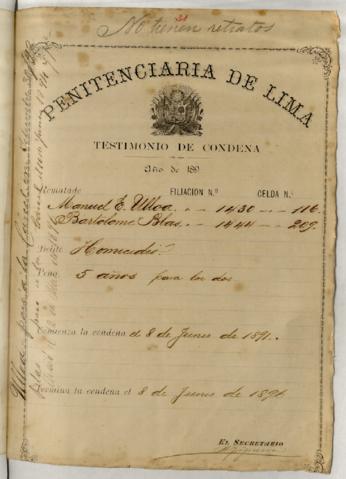 No tienen retratos
PENITENCIARIA DE LIMA
TESTIMONIO DE CONDENA
Año de 189
Rematado FILIACION N.º CELDA N.º
Manuel E. Ulloa .. 1430 .. 116.
Bartolomé Blas .. 1444 .. 209.
Delito Homicidio
Pena 5 años para los dos
Comienza la condena el 8 de Junio de 1891.
Termina la condena el 8 de Junio de 1896
EL SECRETARIO
Ulloa pasó a la
Blas